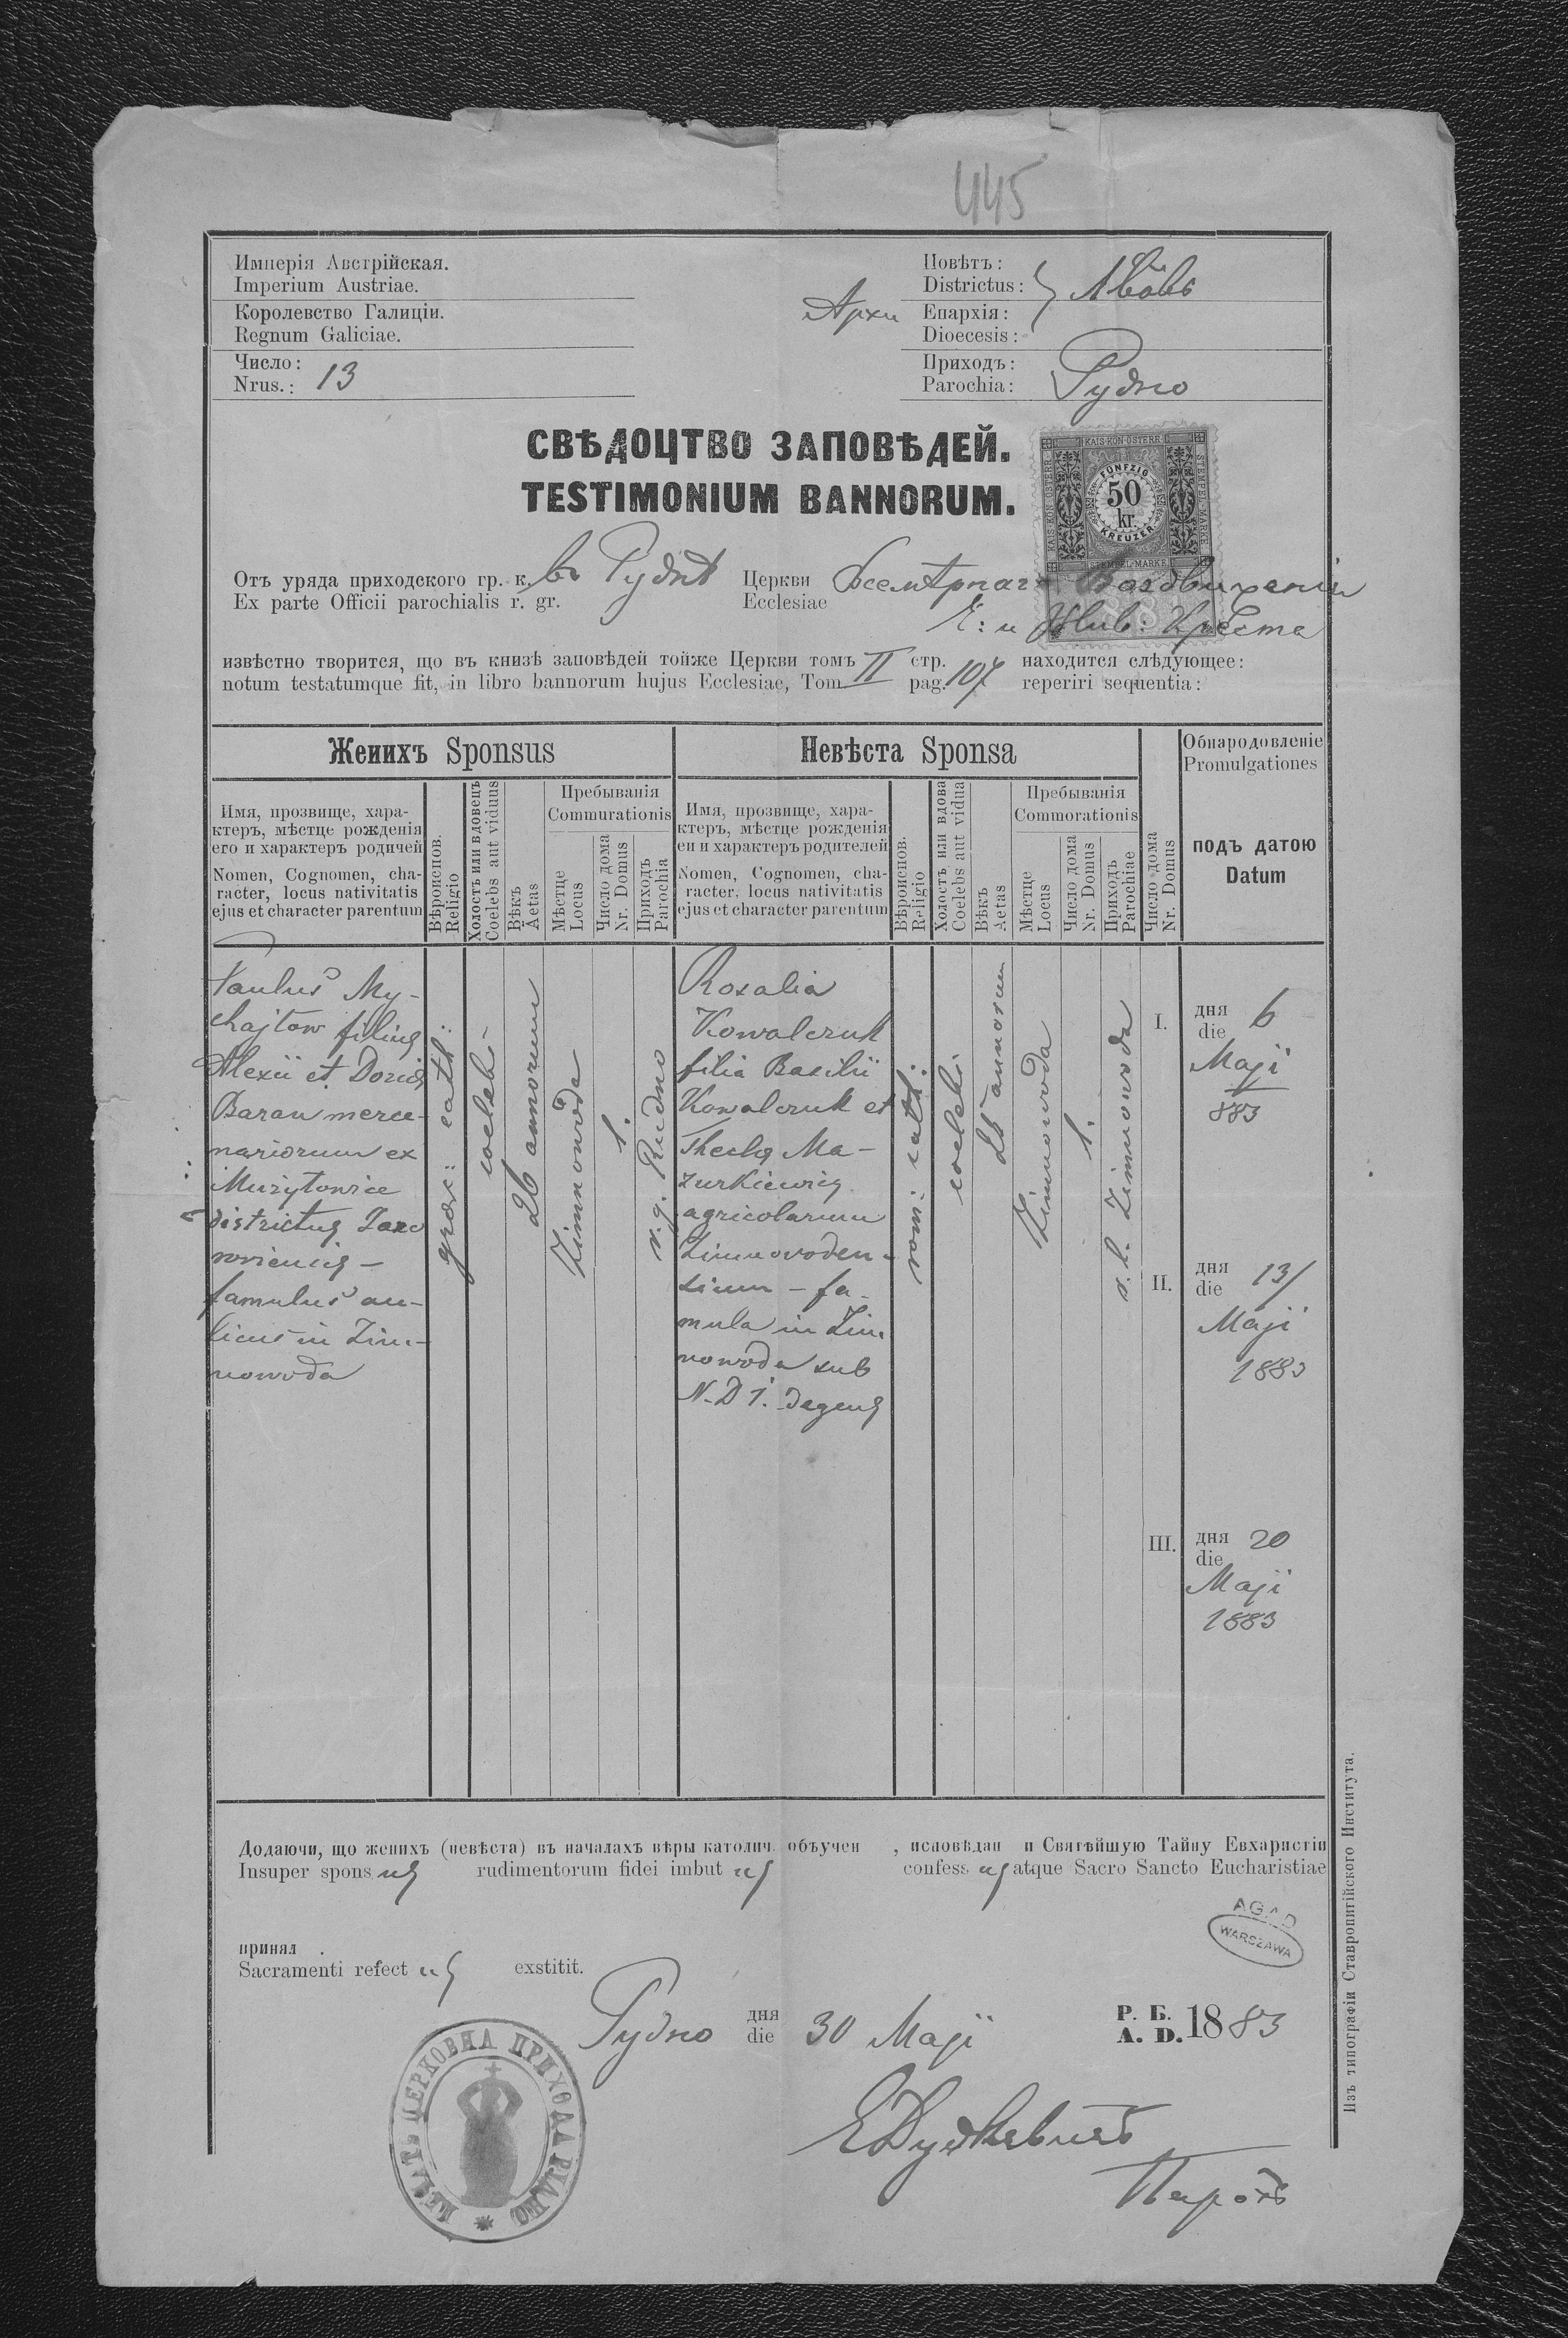 445
Имперія Австрійская.
Imperium Austriae.
Королевство Галиціи.
Regnum Galiciae.
Число:
Nrus.: 13
Повѣтъ:
Districtus: Львôвъ
Архи Епархія:
Dioecesis:
Приходъ:
Parochia: Рудно
СВѢДОЦТВО ЗАПОВѢДЕЙ.
TESTIMONIUM BANNORUM.
KAIS. KÖN. ÖSTERR.
STEMPEL-MARKE
FÜNFZIG
50
kr.
KREUZER
KAIS. KÖN. ÖSTERR.
STEMPEL-MARKE
Отъ уряда приходского гр. к. въ Руднѣ Церкви Всемѣрнаго Воздвиженія
Ex parte Officii parochialis r. gr. Ecclesiae
Ч: и Жив: Креста
извѣстно творится, що въ книзѣ заповѣдей тойже Церкви томъ II стр. 107 находится слѣдующее:
notum testatumque fit, in libro bannorum hujus Ecclesiae, Tom pag. reperiri sequentia:
Женихъ Sponsus
Невѣста Sponsa
Обнародовленіе
Promulgationes
Имя, прозвище, хара-
ктеръ, мѣстце рожденія
его и характеръ родичей
Nomen, Cognomen, cha-
racter, locus nativitatis
ejus et character parentum
Вѣроиспов.
Religio
Холостъ или вдовецъ
Coelebs aut viduus
Вѣкъ
Aetas
Пребыванія
Commurationis
Мѣстце
Locus
Число дома
Nr. Domus
Приходъ
Parochia
Имя, прозвище, хара-
ктеръ, мѣстце рожденія
еи и характеръ родителей
Nomen, Cognomen, cha-
racter, locus nativitatis
ejus et character parentum
Вѣроиспов.
Religio
Холостъ или вдова
Coelebs aut vidua
Вѣкъ
Aetas
Пребыванія
Commorationis
Мѣстце
Locus
Число дома
Nr. Domus
Приходъ
Parochiae
Число дома
Nr. Domus
подъ датою
Datum
Paulus My-
chajtow filius
Alexii et Doriae
Baran merce-
nariorum ex
Mużyłowice
districtus Jawo
roviensis –
famulus au-
licus in Zim-
nowoda
graec: cath:
coelebs
26 annorum
Zimnowoda
1.
r. g. Rudno
Rosalia
Kowalczuk
filia Basilii
Kowalczuk et
Theclae Ma-
zurkiewicz
agricolarum
Zimnovoden-
sium – fa-
mula in Zim
nowoda sub
N. D 1. degens
rom: cath:
coelebs
25 annorum
Zimnowoda
1.
r. l. Zimnowoda
I. дня
die 6
Maji
883
II. дня
die 13/
Maji
1883
III. дня
die 20
Maji
1883
Додаючи, що женихъ (невѣста) въ началахъ вѣры католич. объучен , исповѣдан и Святѣйшую Тайну Евхаристіи
Insuper spons us rudimentorum fidei imbut us confess us atque Sacro Sancto Eucharistiae
принял .
Sacramenti refect us exstitit.
AGAD
WARSZAWA
Рудно дня
die 30 Maji Р. Б.
A. D. 1883
ПЕЧАТЬ ЦЕРКОВНА ПРИХОДА РУДНО
Парохъ
Изъ типографіи Ставропигійского Института.